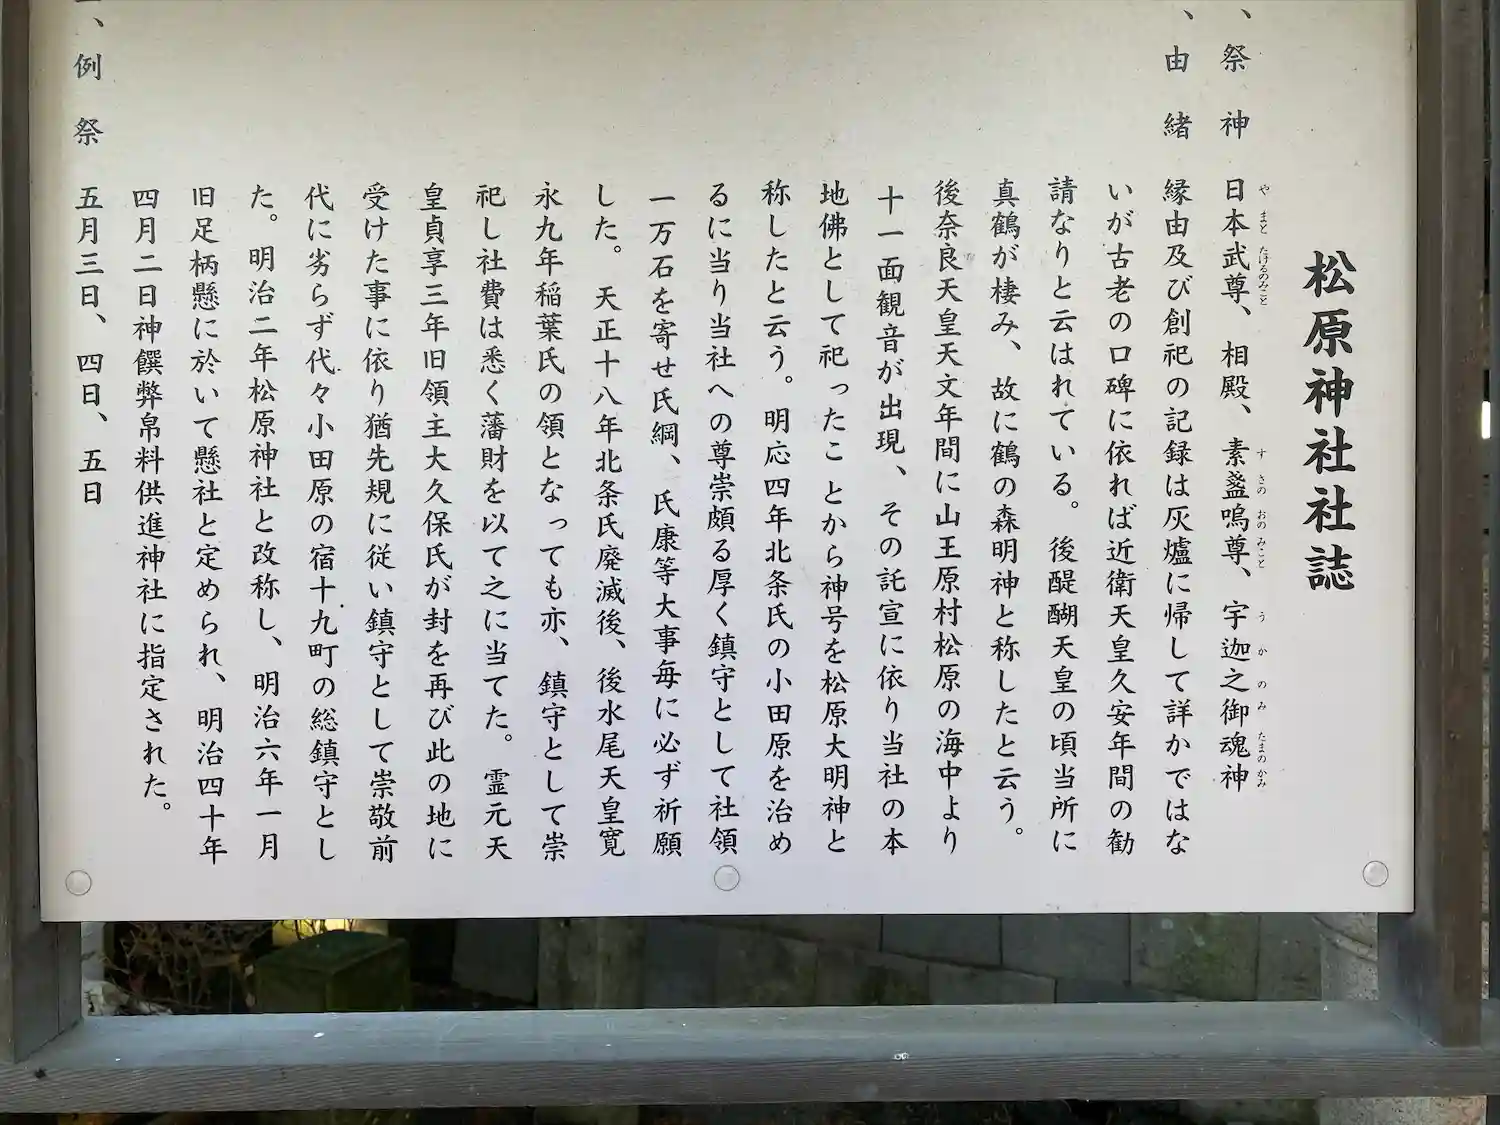 松原神社社誌
、祭神 日本武尊、相殿、素盞嗚尊、宇迦之御魂神
やまとたけるのみこと すさのおのみこと うかのみたまのかみ
、由緒 縁由及び創祀の記録は灰爐に帰して詳かではな
いが古老の口碑に依れば近衛天皇久安年間の勧
請なりと云はれている。後醍醐天皇の頃当所に
真鶴が棲み、故に鶴の森明神と称したと云う。
後奈良天皇天文年間に山王原村松原の海中より
十一面観音が出現、その託宣に依り当社の本
地佛として祀ったことから神号を松原大明神と
称したと云う。明応四年北条氏の小田原を治め
るに当り当社への尊崇頗る厚く鎮守として社領
一万石を寄せ氏綱、氏康等大事毎に必ず祈願
した。天正十八年北条氏廃滅後、後水尾天皇寛
永九年稲葉氏の領となっても亦、鎮守として崇
祀し社費は悉く藩財を以て之に当てた。霊元天
皇貞享三年旧領主大久保氏が封を再び此の地に
受けた事に依り猶先規に従い鎮守として崇敬前
代に劣らず代々小田原の宿十九町の総鎮守とし
た。明治二年松原神社と改称し、明治六年一月
旧足柄縣に於いて懸社と定められ、明治四十年
四月二日神饌弊帛料供進神社に指定された。
、例祭 五月三日、四日、五日